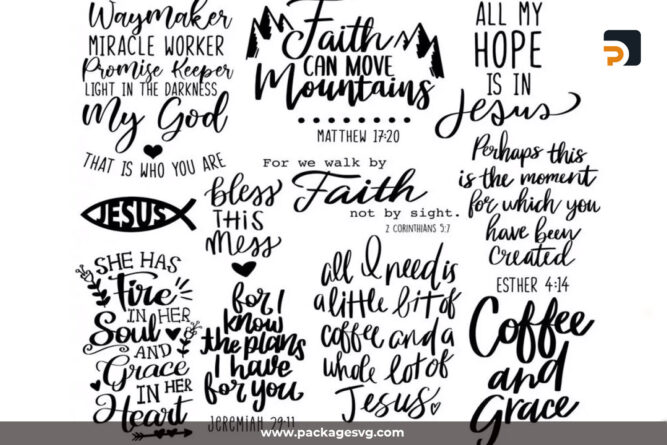 Waymaker
MIRACLE WORKER
Promise Keeper
LIGHT IN THE DARKNESS
My God
THAT IS WHO YOU ARE
Faith
CAN MOVE
Mountains
MATTHEW 17:20
ALL MY
HOPE
IS IN
Jesus
For we walk by
Faith
not by sight.
2 CORINTHIANS 5:7
Perhaps this
is the moment
for which you
have been
created
ESTHER 4:14
JESUS
bless
THIS
mess
SHE HAS
Fire
IN HER
Soul
AND
Grace
IN HER
Heart
for I
know
the plans
I have
for you
JEREMIAH 29:11
all I need is
a little bit of
coffee and a
whole lot of
Jesus
Coffee
and
Grace
www.packagesvg.com